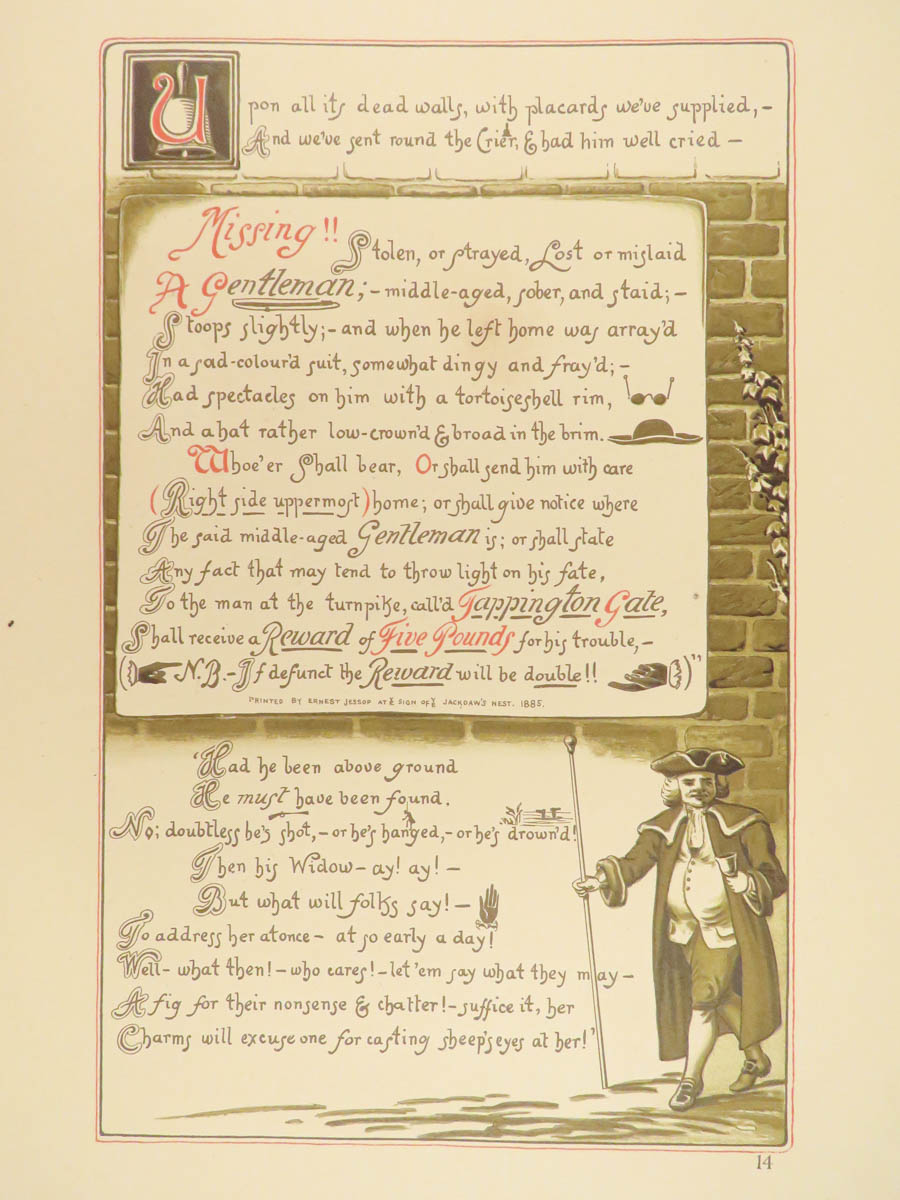 Upon all its dead walls, with placards we've supplied,-
And we've sent round the Crier, & had him well cried -
Missing!!
Stolen, or strayed, Lost or mislaid
A Gentleman;- middle-aged, sober, and staid;-
Stoops slightly;- and when he left home was array'd
In a sad-colour'd suit, somewhat dingy and fray'd;-
Had spectacles on him with a tortoiseshell rim,
And a hat rather low-crown'd & broad in the brim.
Whoe'er Shall bear, Or shall send him with care
(Right side uppermost) home; or shall give notice where
The said middle-aged Gentleman is; or shall state
Any fact that may tend to throw light on his fate,
To the man at the turnpike, call'd Tappington Gate,
Shall receive a Reward of Five Pounds for his trouble,-
(N.B.- If defunct the Reward will be double!!)"
PRINTED BY ERNEST JESSOP AT Yᴱ SIGN OF Yᴱ JACKDAW'S NEST. 1885.
'Had he been above ground
He must have been found.
No; doubtless he's shot,- or he's hanged,- or he's drown'd!
Then his Widow - ay! ay! -
But what will folks say! -
To address her at once - at so early a day!
Well - what then! - who cares! - let 'em say what they may -
A fig for their nonsense & chatter! - suffice it, her
Charms will excuse one for casting sheep's eyes at her!'
14